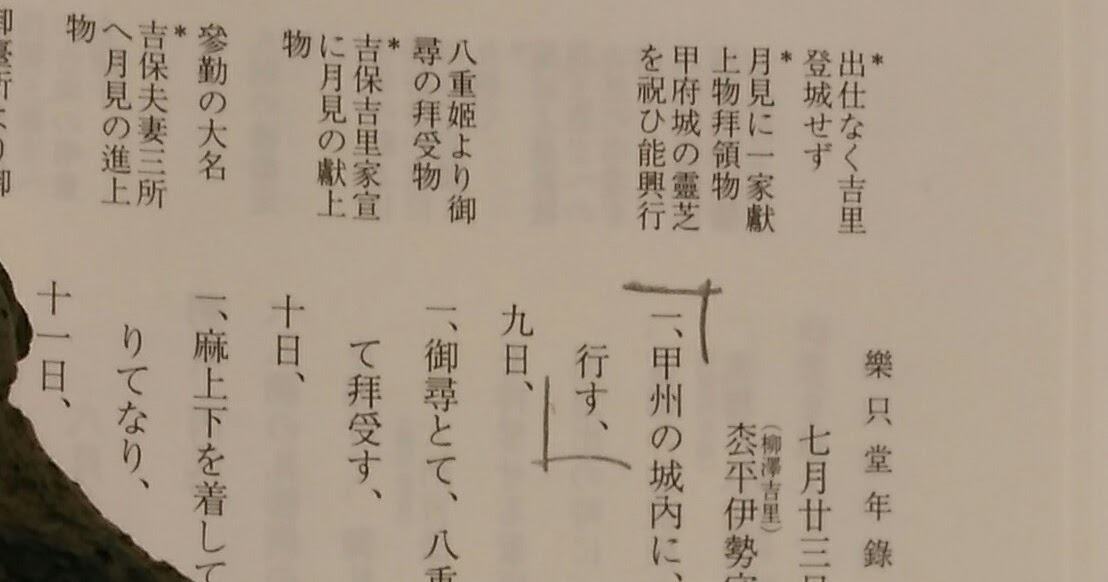 樂只堂年錄
七月廿三日
(柳澤吉里)
枩平伊勢守
一、甲州の城内に、
行す、
九日、
一、御尋とて、八重
て拝受す、
十日、
一、麻上下を着して
りてなり、
十一日、
*出仕なく吉里
登城せず
*月見に一家獻
上物拜領物
甲府城の靈芝
を祝ひ能興行
八重姬より御
尋の拜受物
*吉保吉里家宣
に月見の獻上
物
參勤の大名
*吉保夫妻三所
へ月見の進上
物
御臺所より御